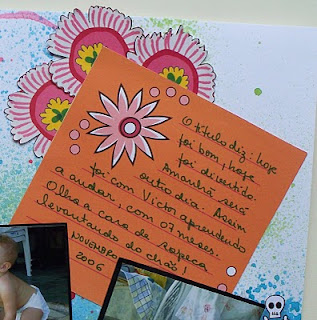 O título diz: hoje
foi bom, hoje
foi divertido.
Amanhã será
outro dia. Assim
foi com Victor aprendendo
a andar, com 07 meses.
Olha a cara de sapeca
levantando do chão!
NOVEMBRO
2006